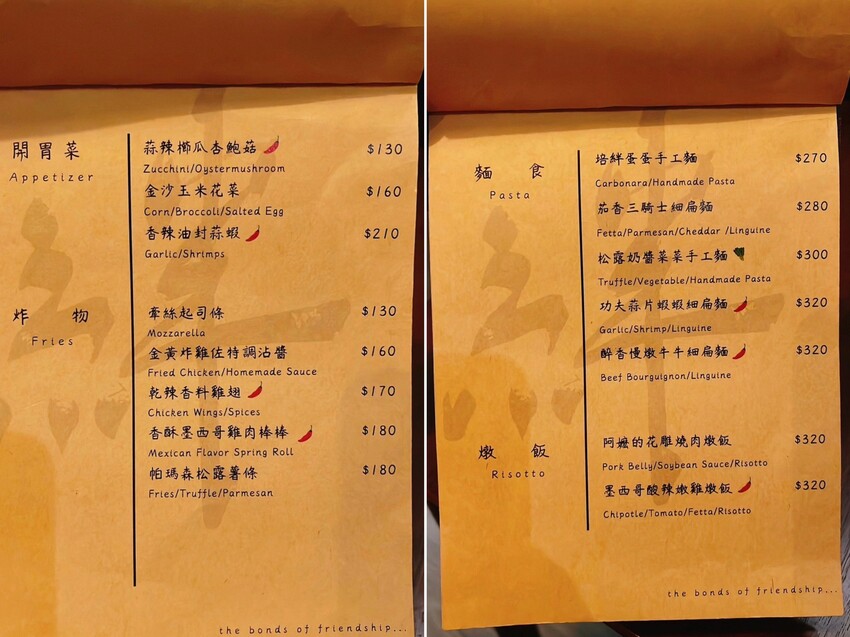 開胃菜
Appetizer
蒜辣櫛瓜杏鮑菇 $130
Zucchini/Oystermushroom
金沙玉米花菜 $160
Corn/Broccoli/Salted Egg
香辣油封蒜蝦 $210
Garlic/Shrimps
炸物
Fries
牽絲起司條 $130
Mozzarella
金黃炸雞佐特調沾醬 $160
Fried Chicken/Homemade Sauce
乾辣香料雞翅 $170
Chicken Wings/Spices
香酥墨西哥雞肉棒棒 $180
Mexican Flavor Spring Roll
帕瑪森松露薯條 $180
Fries/Truffle/Parmesan
the bonds of friendship...
麵食
Pasta
培絆蛋蛋手工麵 $270
Carbonara/Handmade Pasta
茄香三騎士細扁麵 $280
Fetta/Parmesan/Cheddar /Linguine
松露奶醬菜菜手工麵 $300
Truffle/Vegetable/Handmade Pasta
功夫蒜片蝦蝦細扁麵 $320
Garlic/Shrimp/Linguine
醉香慢燉牛牛細扁麵 $320
Beef Bourguignon/Linguine
燉飯
Risotto
阿嬤的花雕燒肉燉飯 $320
Pork Belly/Soybean Sauce/Risotto
墨西哥酸辣嫩雞燉飯 $320
Chipotle/Tomato/Fetta/Risotto
the bonds of friendship...